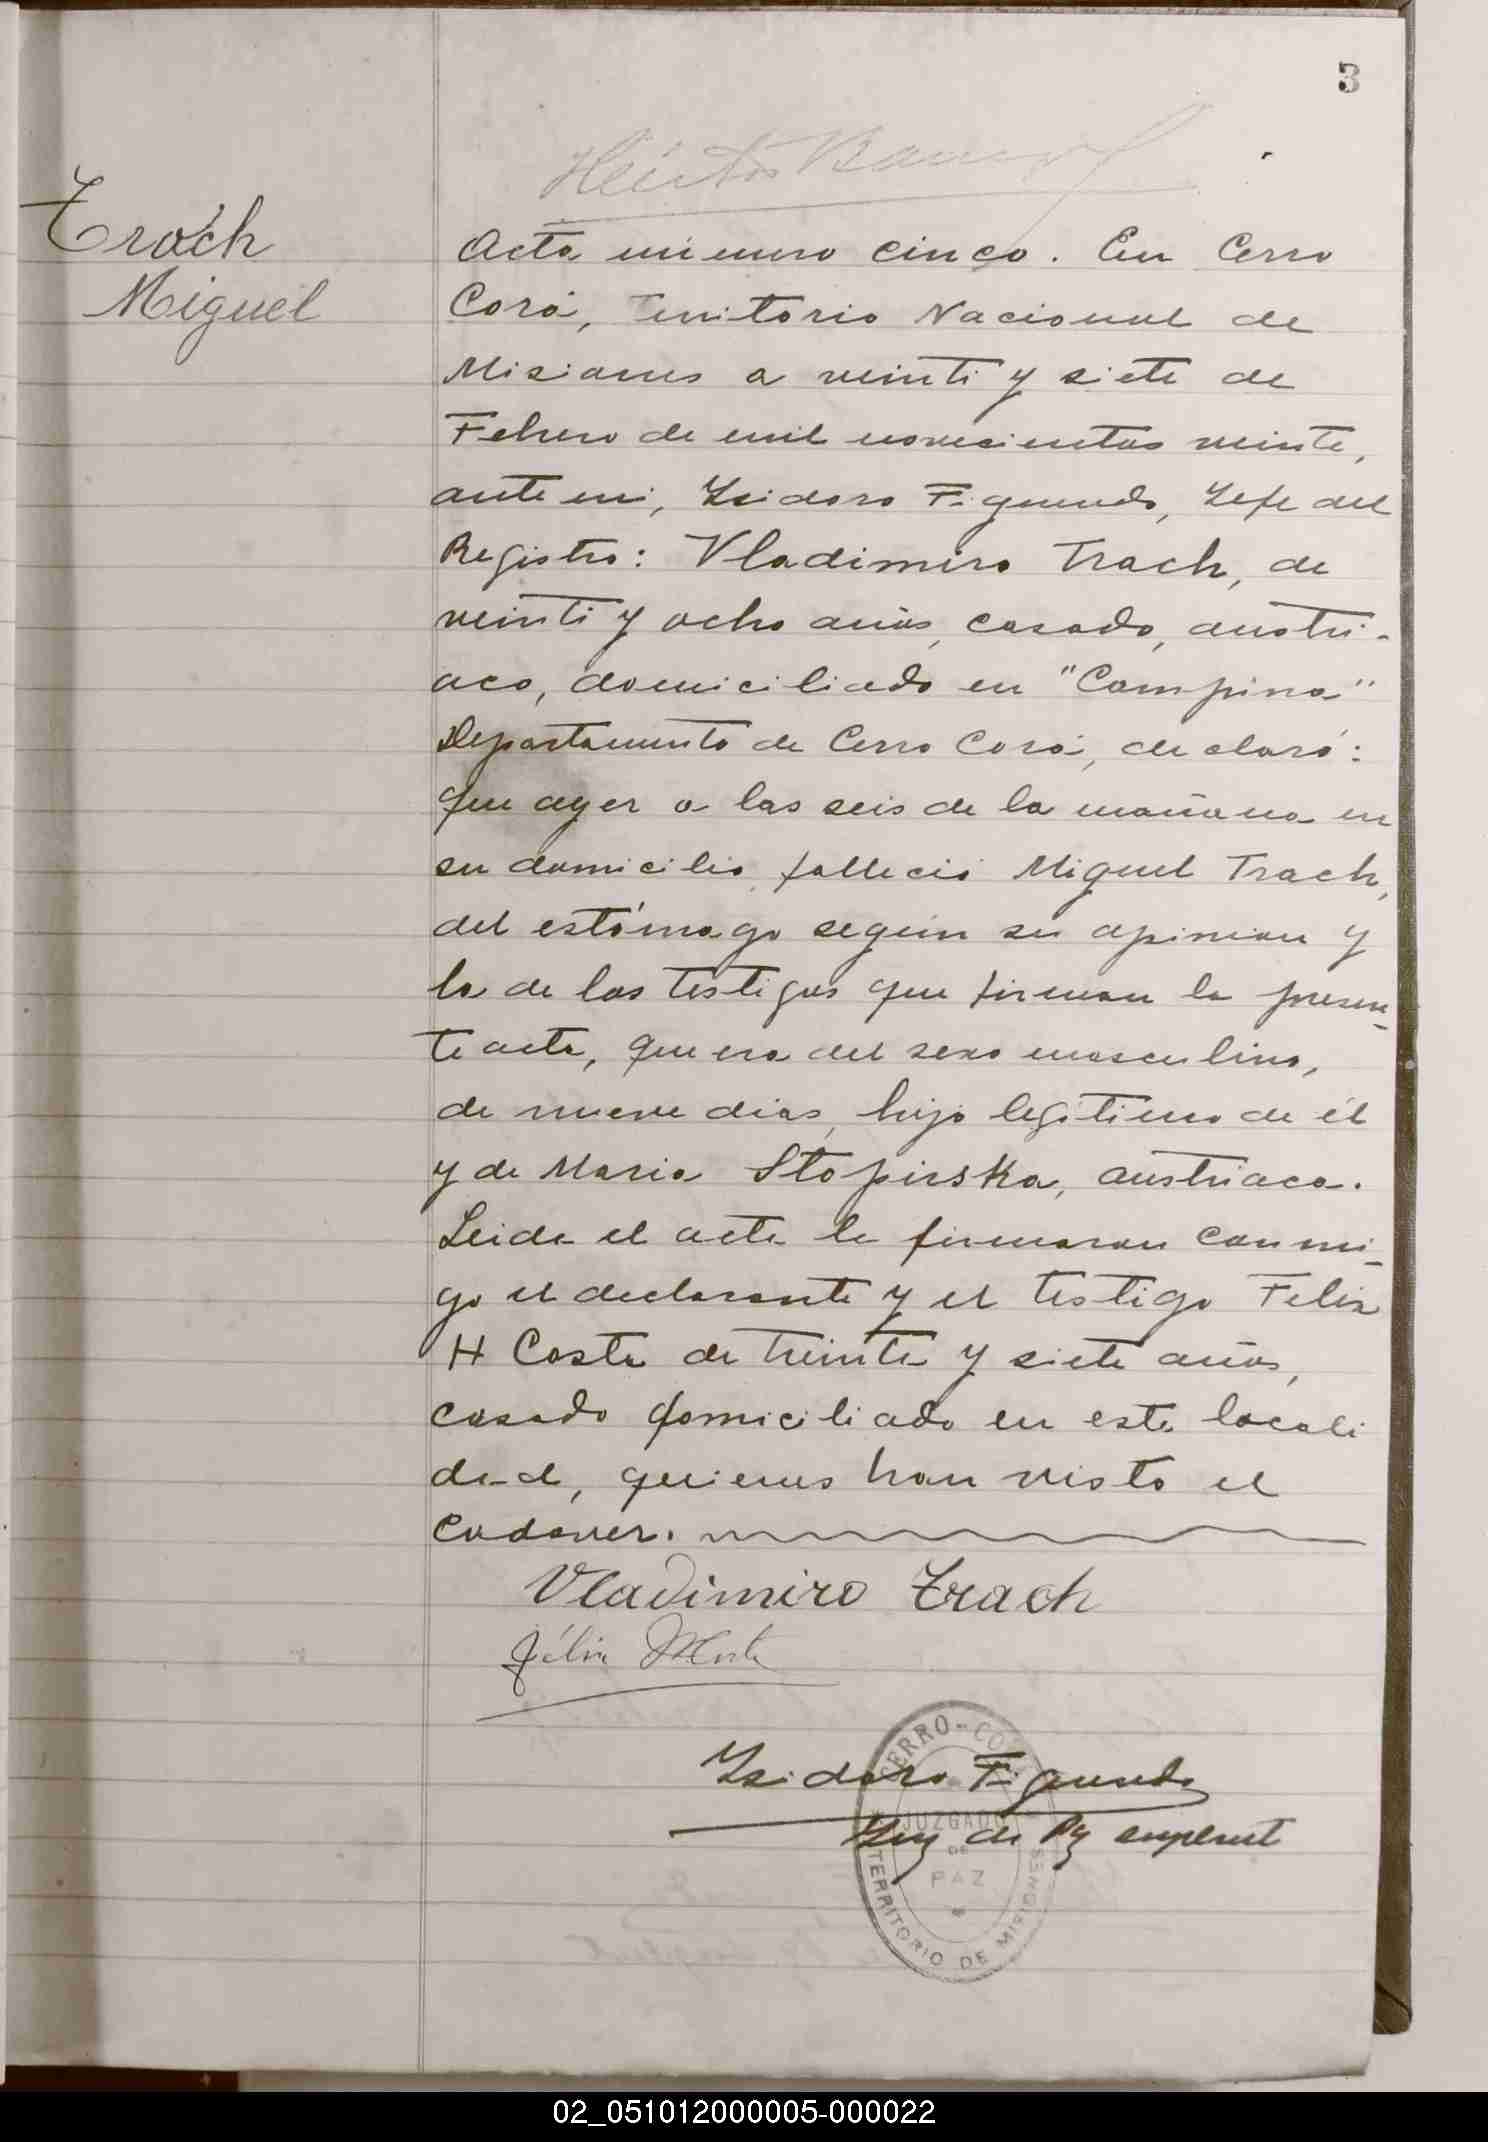 3
Trach
Miguel
Acta número cinco. En Cerro
Corá, Territorio Nacional de
Misiones a veinti y siete de
Febrero de mil novecientos veinte,
ante mi, Isidoro Figueredo, Jefe del
Registro: Vladimiro Trach, de
veinti y ocho años, casado, austri-
aco, domiciliado en "Campina"
Departamento de Cerro Corá, declaró:
que ayer a las seis de la mañana en
su domicilio, falleció Miguel Trach,
del estómago según su opinion y
la de los testigos que firman la presen-
te acta, que era del sexo masculino,
de nueve dias, hijo legítimo de él
y de Maria Stopirska, austriaca.
Leida el acta la firmaron conmi-
go el declarante y el testigo Felix
H Costa de treinta y siete años,
casado domiciliado en esta locali
dad, quienes han visto el
cadaver.
Vladimiro Trach
Félix
Isidoro Figueredo
Juez de Paz suplent
CERRO-CORÁ
JUZGADO
DE
PAZ
TERRITORIO DE MISIONES
02_051012000005-000022